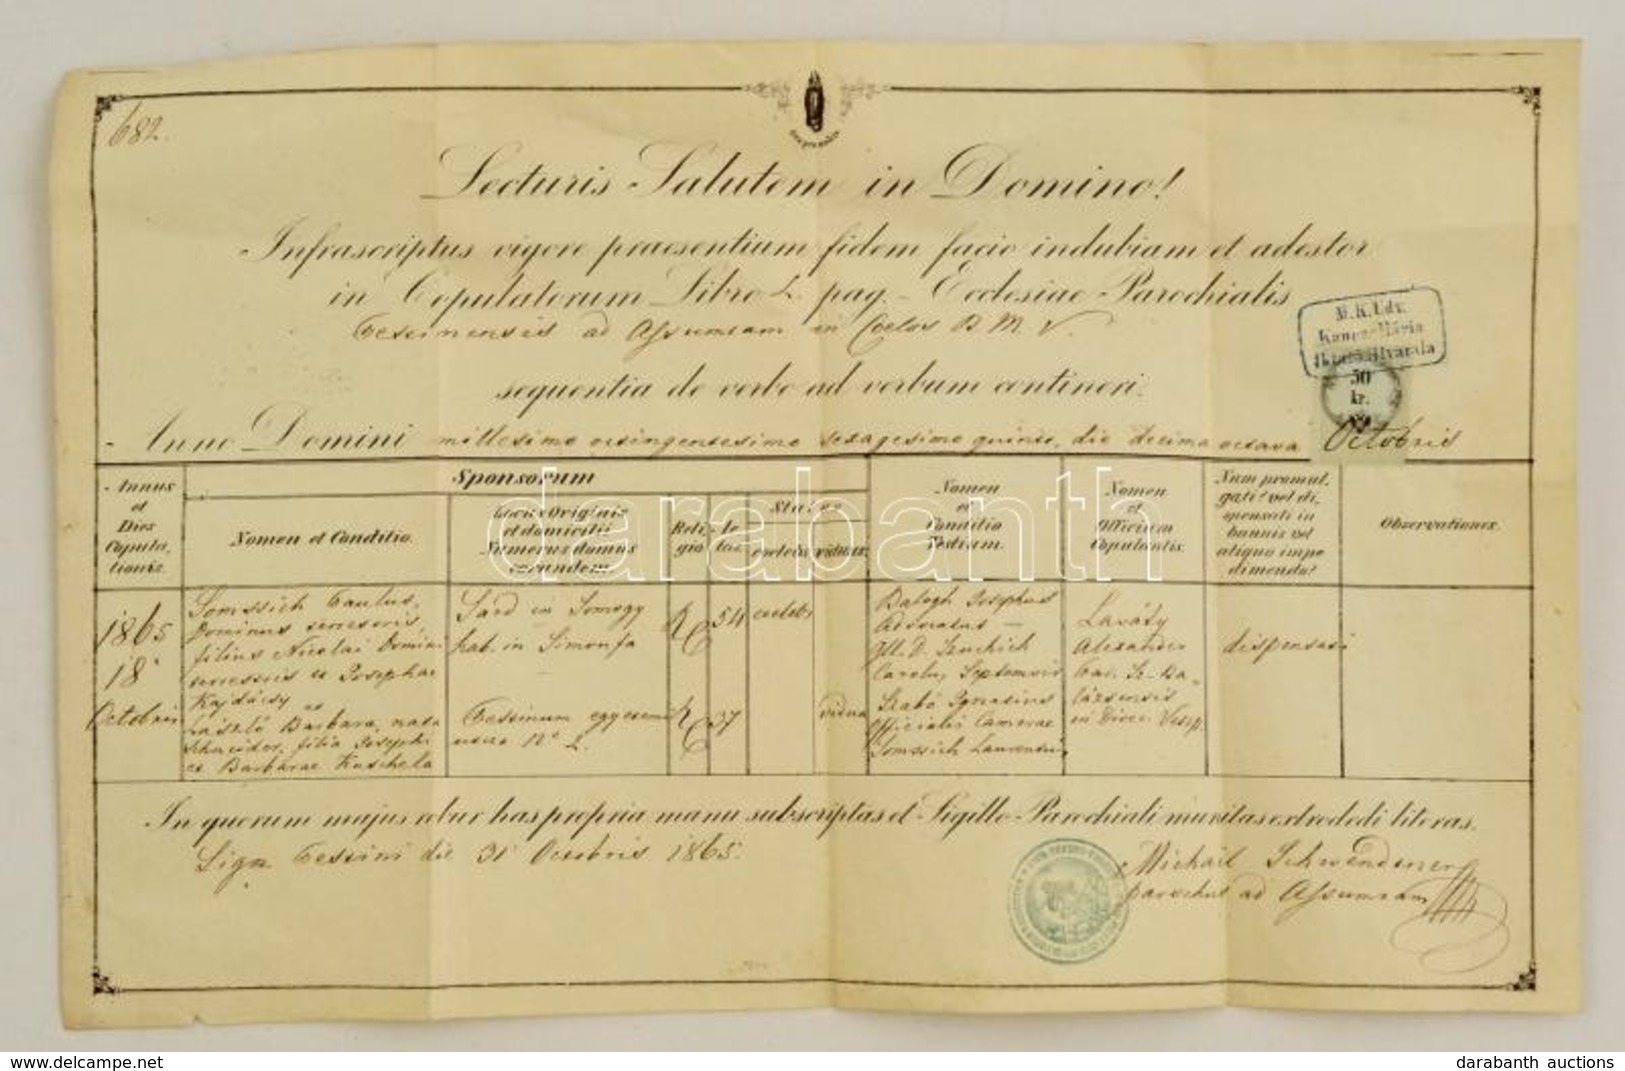 682.
Lecturis Salutem in Domino!
Infrascriptus vigore praesentium fidem facio indubiam et adestor
in Copulatorum Libro L. pag. - Ecclesiae Parochialis
ad Assumtam in Coelos B. M. V.
sequentia de verbo ad verbum contineri.
Anno Domini millesimo octingentesimo sexagesimo quinto, die decima octava Octobris
M. K. Udv.
50
kr.
Annus
et
Dies
Copula,
tionis.
Sponsorum
Nomen et Conditio.
Locus Originis
et domicilii
Numerus domus
eorundem
Reli-
gio
Ae-
tas
Status
coelebs
viduus
Nomen
et
Conditio
Testium.
Nomen
et
Officium
Copulantis.
Num promul,
gati? vel di,
spensati in
bannis vel
aliquo impe
dimento?
Observationes.
1865
18
Octobris
Somssich Paulus,
Dominus terrestris,
filius Nicolai Domini
terrestris et Josephae
Kajdácsy
et
László Barbara, nata
Schneider, filia Josephi
et Barbarae Kuschela
Sárd in Somogy
hab. in Simonfa
Pestinum
No 2.
RC
54
coelebs
RC
37
vidua
Balogh Josephus
Advocatus
Carolus Septemvir
Szabó Ignatius
Officialis Camerae
Somssich Laurentius
Laváty
Alexander
Par. Sz. Ba-
lázsensis
in Dioec. Vesp.
dispensati
In quorum majus robur has propria manu subscriptas et Sigillo Parochiali munitas extradedi literas.
Sign. Pestini die 31 Octobris 1865.
Michaël Schwendtner
parochus ad Assumtam
darabanth
www.delcampe.net
darabanth auctions